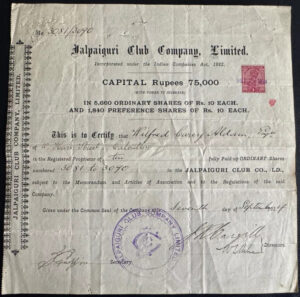 No 3081/3090
Jalpaiguri Club Company, Limited.
Incorporated under the Indian Companies Act, 1882.
CAPITAL Rupees 75,000
WITH POWER TO INCREASE
IN 5,660 ORDINARY SHARES OF Rs. 10 EACH.
AND 1,840 PREFERENCE SHARES OF Rs. 10 EACH.
This is to Certify that Wilfred Carey Aldam, Esq
of Street Calcutta
is the Registered Proprietor of Ten fully Paid-up ORDINARY Shares
numbered 3081 to 3090 in the JALPAIGURI CLUB CO., LD.,
subject to the Memorandum and Articles of Association and the Regulations of the said
Company.
Given under the Common Seal of the Company seventh day of September
Directors.
Secretary.
JALPAIGURI CLUB COMPANY LIMITED
JALPAIGURI CLUB COMPANY LIMITED.